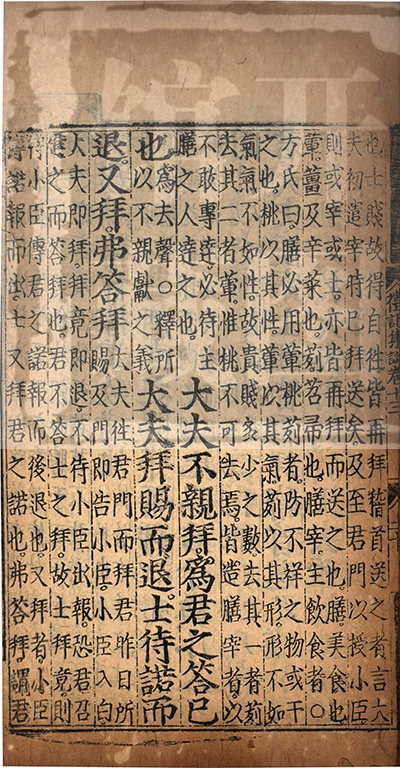 也士賤故得自徃皆再拜稽首送之者言大
夫初遣宰時巳拜送矣及至君門以授小臣
則或宰或士亦皆再拜而送之也。膳美食也
葷薑及辛菜也。茢苕帚也。膳宰主飲食者○
方氏曰。膳必用葷桃茢者。防不祥之物或干
之也。桃以其性。葷以其氣。茢以其形。形不如
氣。氣不如性。故貴賤多少之數。去其一者茢。
去其二者葷。惟桃不可去焉。皆造膳宰者。以
不敢專達。必待主
膳之人達之也。
大夫不親拜。爲君之答巳
也。
爲去聲○釋所
以不親獻之義
大夫拜賜而退。士待諾而
退。又拜。弗答拜
大夫徃君門而拜君昨日所
賜。及門即告小臣。小臣入白。
大夫即拜。拜竟即退。不待小臣出報。恐君召
進之而答拜也。君不答士之拜。故士拜竟則
待小臣傳君之諾報而後退也。又拜者。小臣
傳諾報而出。士又拜君之諾也。弗答拜。謂君
禮記集說卷十三